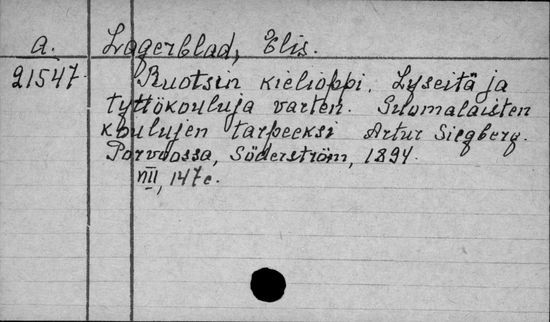 a. Lagerblad, Elis.
21547. Ruotsin kielioppi. Lyseitä ja
tyttökouluja varten. Suomalaisten
koulujen tarpeeksi Artur Siegberg.
Porvoossa, Söderström, 1894.
VIII, 147 c.